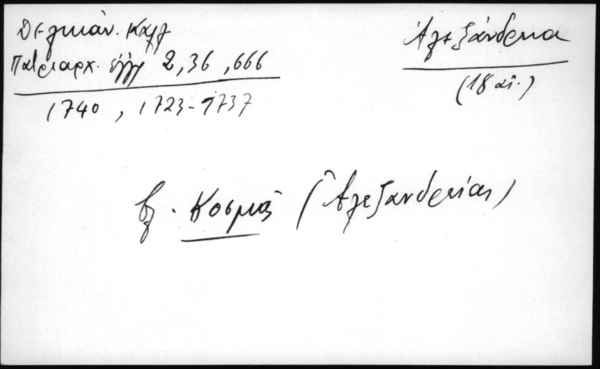 Δελικάν. Καλλ
Πατριαρχ. έγγ 2,36,666
1740, 1723-1737
Ἀλεξάνδρεια
(18 αἰ.)
βλ. Κοσμᾶς (Ἀλεξανδρείας)